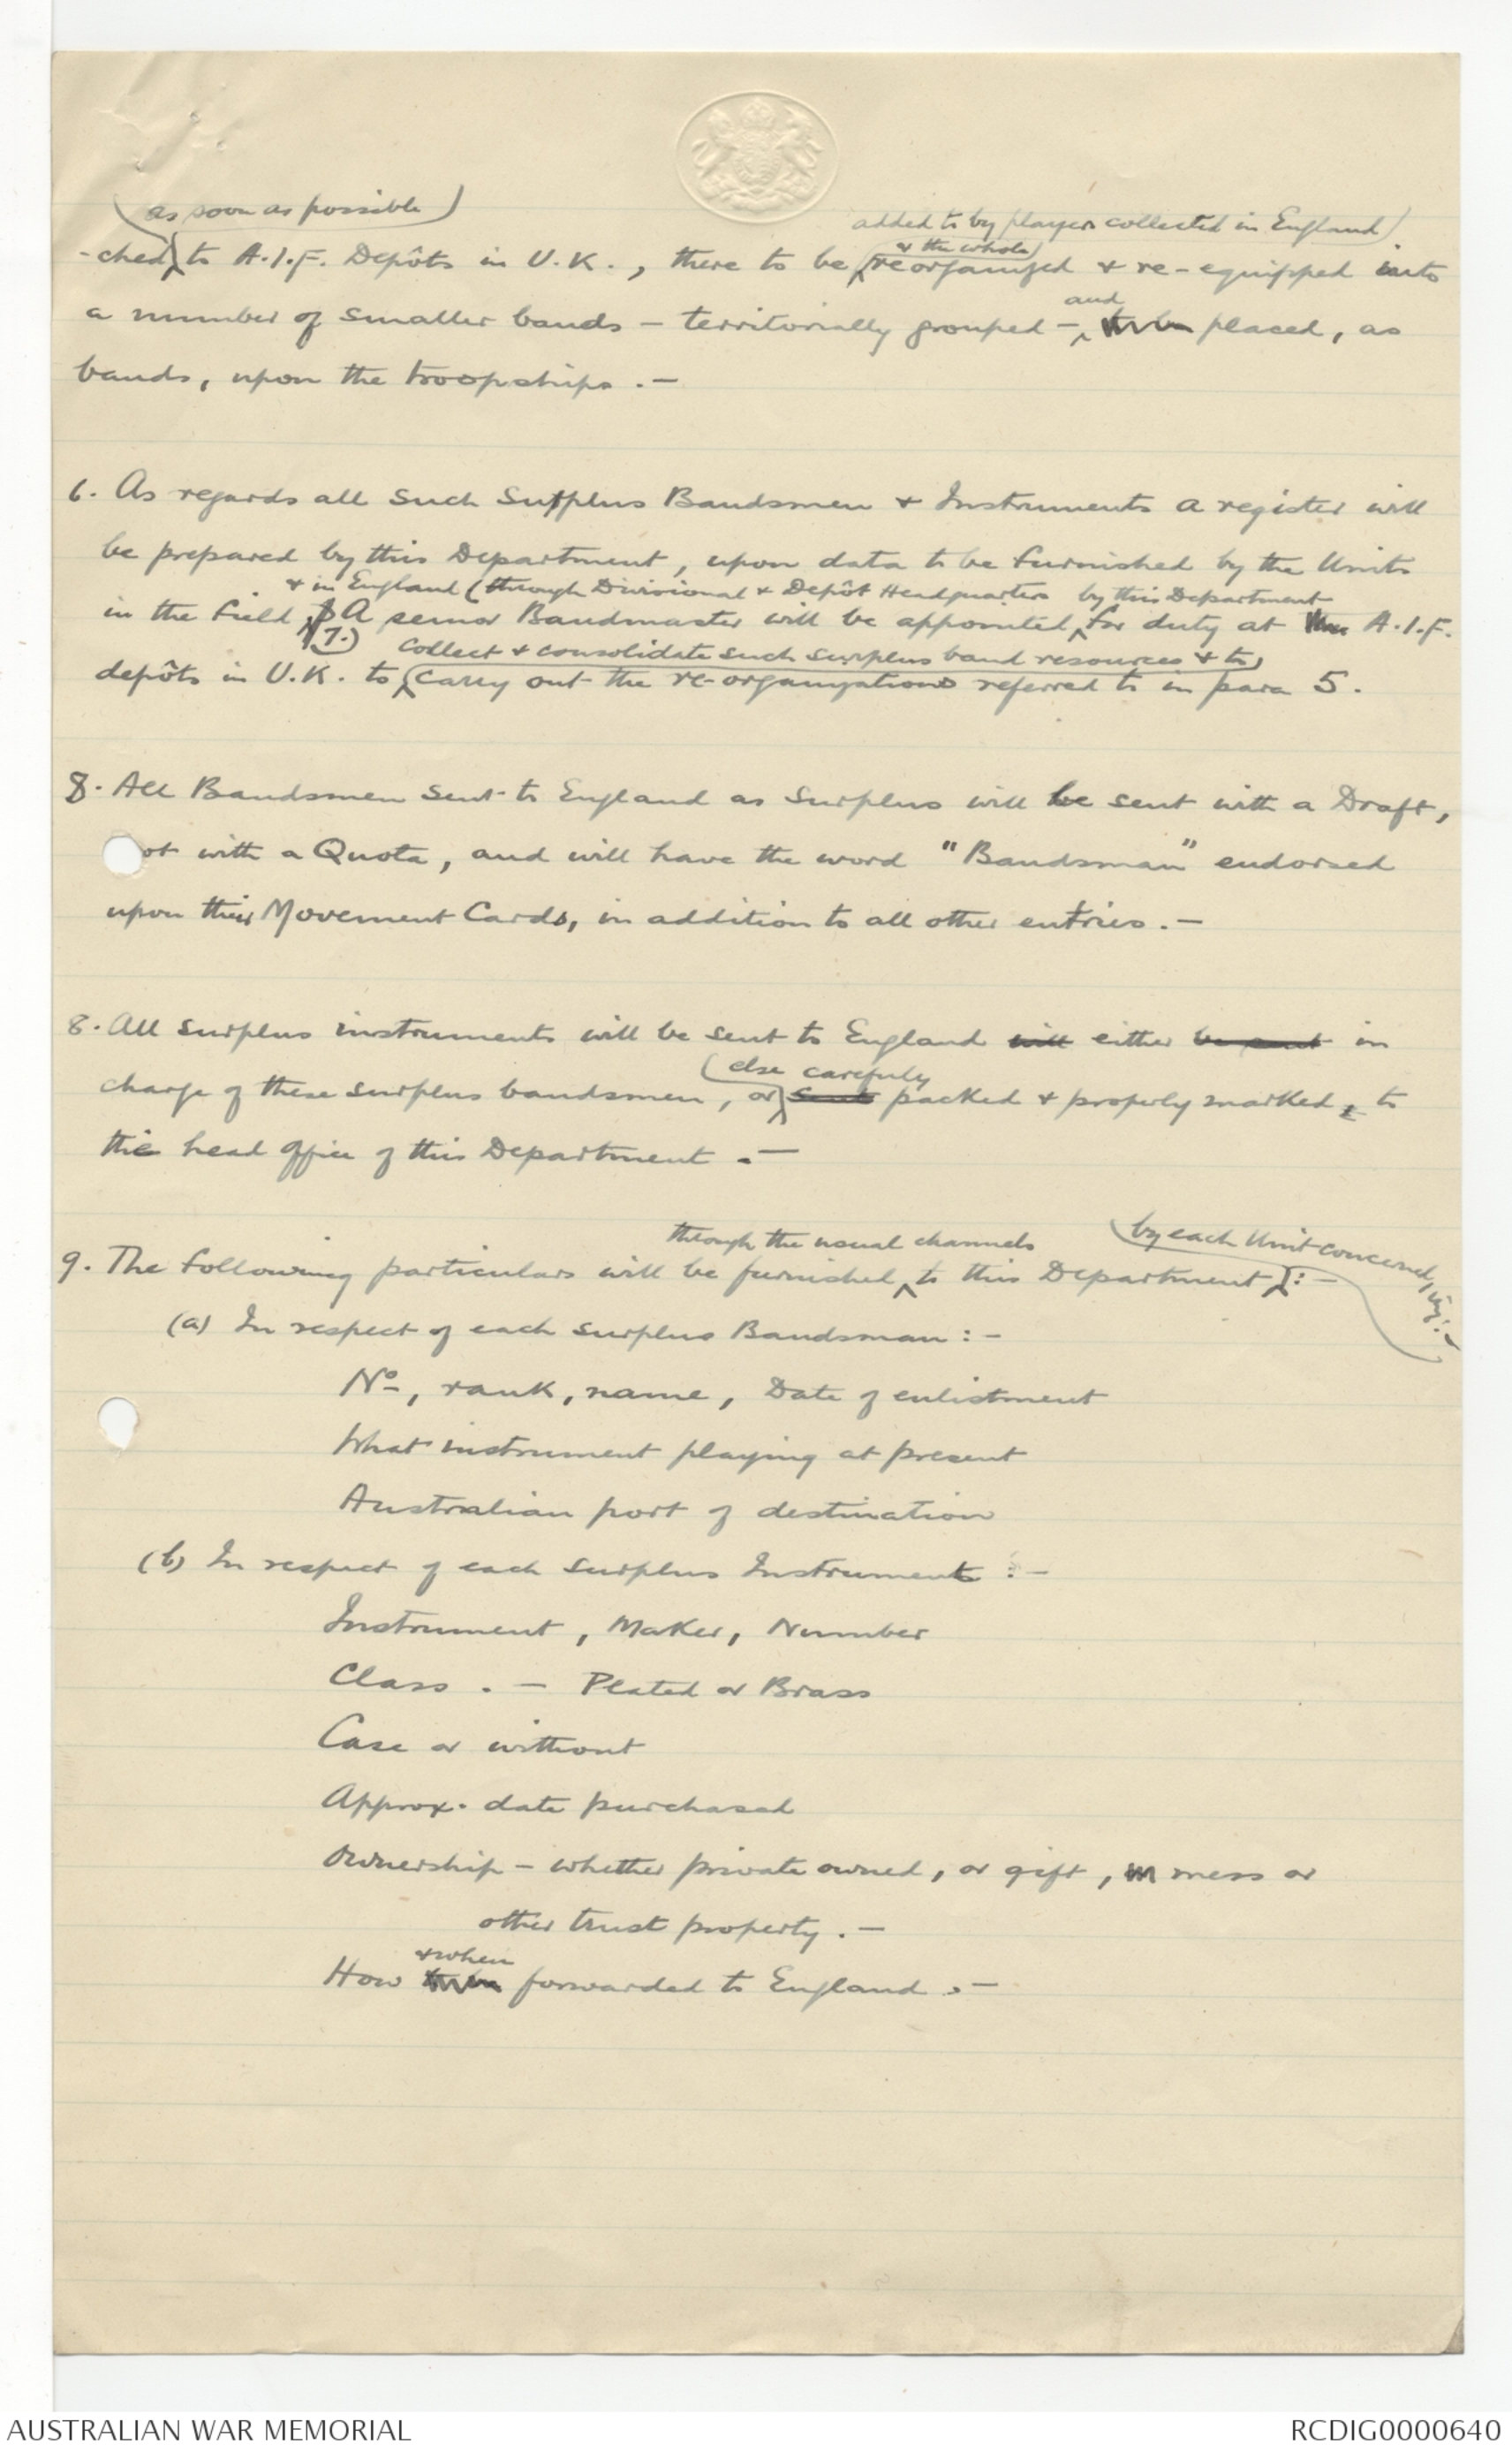 as soon as possible
added to by players collected in England
& the whole
-ched to A.I.F. Depôts in U.K., there to be reorganized & re-equipped into
and
a number of smaller bands - territorially grouped - to be placed, as
bands, upon the troopships. -
6. As regards all such Surplus Bandsmen & Instruments a register will
be prepared by this Department, upon data to be furnished by the Units
& in England (through Divisional & Depôt Headquarters by this Department
in the field, A senior Bandmaster will be appointed for duty at the A.I.F.
(7.) collect & consolidate such surplus band resources & to
depôts in U.K. to carry out the re-organization referred to in para 5.
8. All Bandsmen sent to England as Surplus will be sent with a Draft,
ot with a Quota, and will have the word "Bandsman" endorsed
upon their Movement Cards, in addition to all other entries. -
8. All surplus instruments will be sent to England will either be sent in
else carefuly
charge of these surplus bandsmen, or sent packed & properly marked, to
the head office of this Department. -
through the usual channels by each Unit concerned, viz: -
9. The following particulars will be furnished to this Department: -
(a) In respect of each surplus Bandsman: -
No, rank, name, Date of enlistment
What instrument playing at present
Australian port of destination
(b) In respect of each surplus Instrument: -
Instrument, Maker, Number
Class. - Plated or Brass
Case or without
Approx. date purchased
Ownership - whether private owned, or gift, mess or
other trust property. -
& when
How to be forwarded to England. -
AUSTRALIAN WAR MEMORIAL
RCDIG0000640